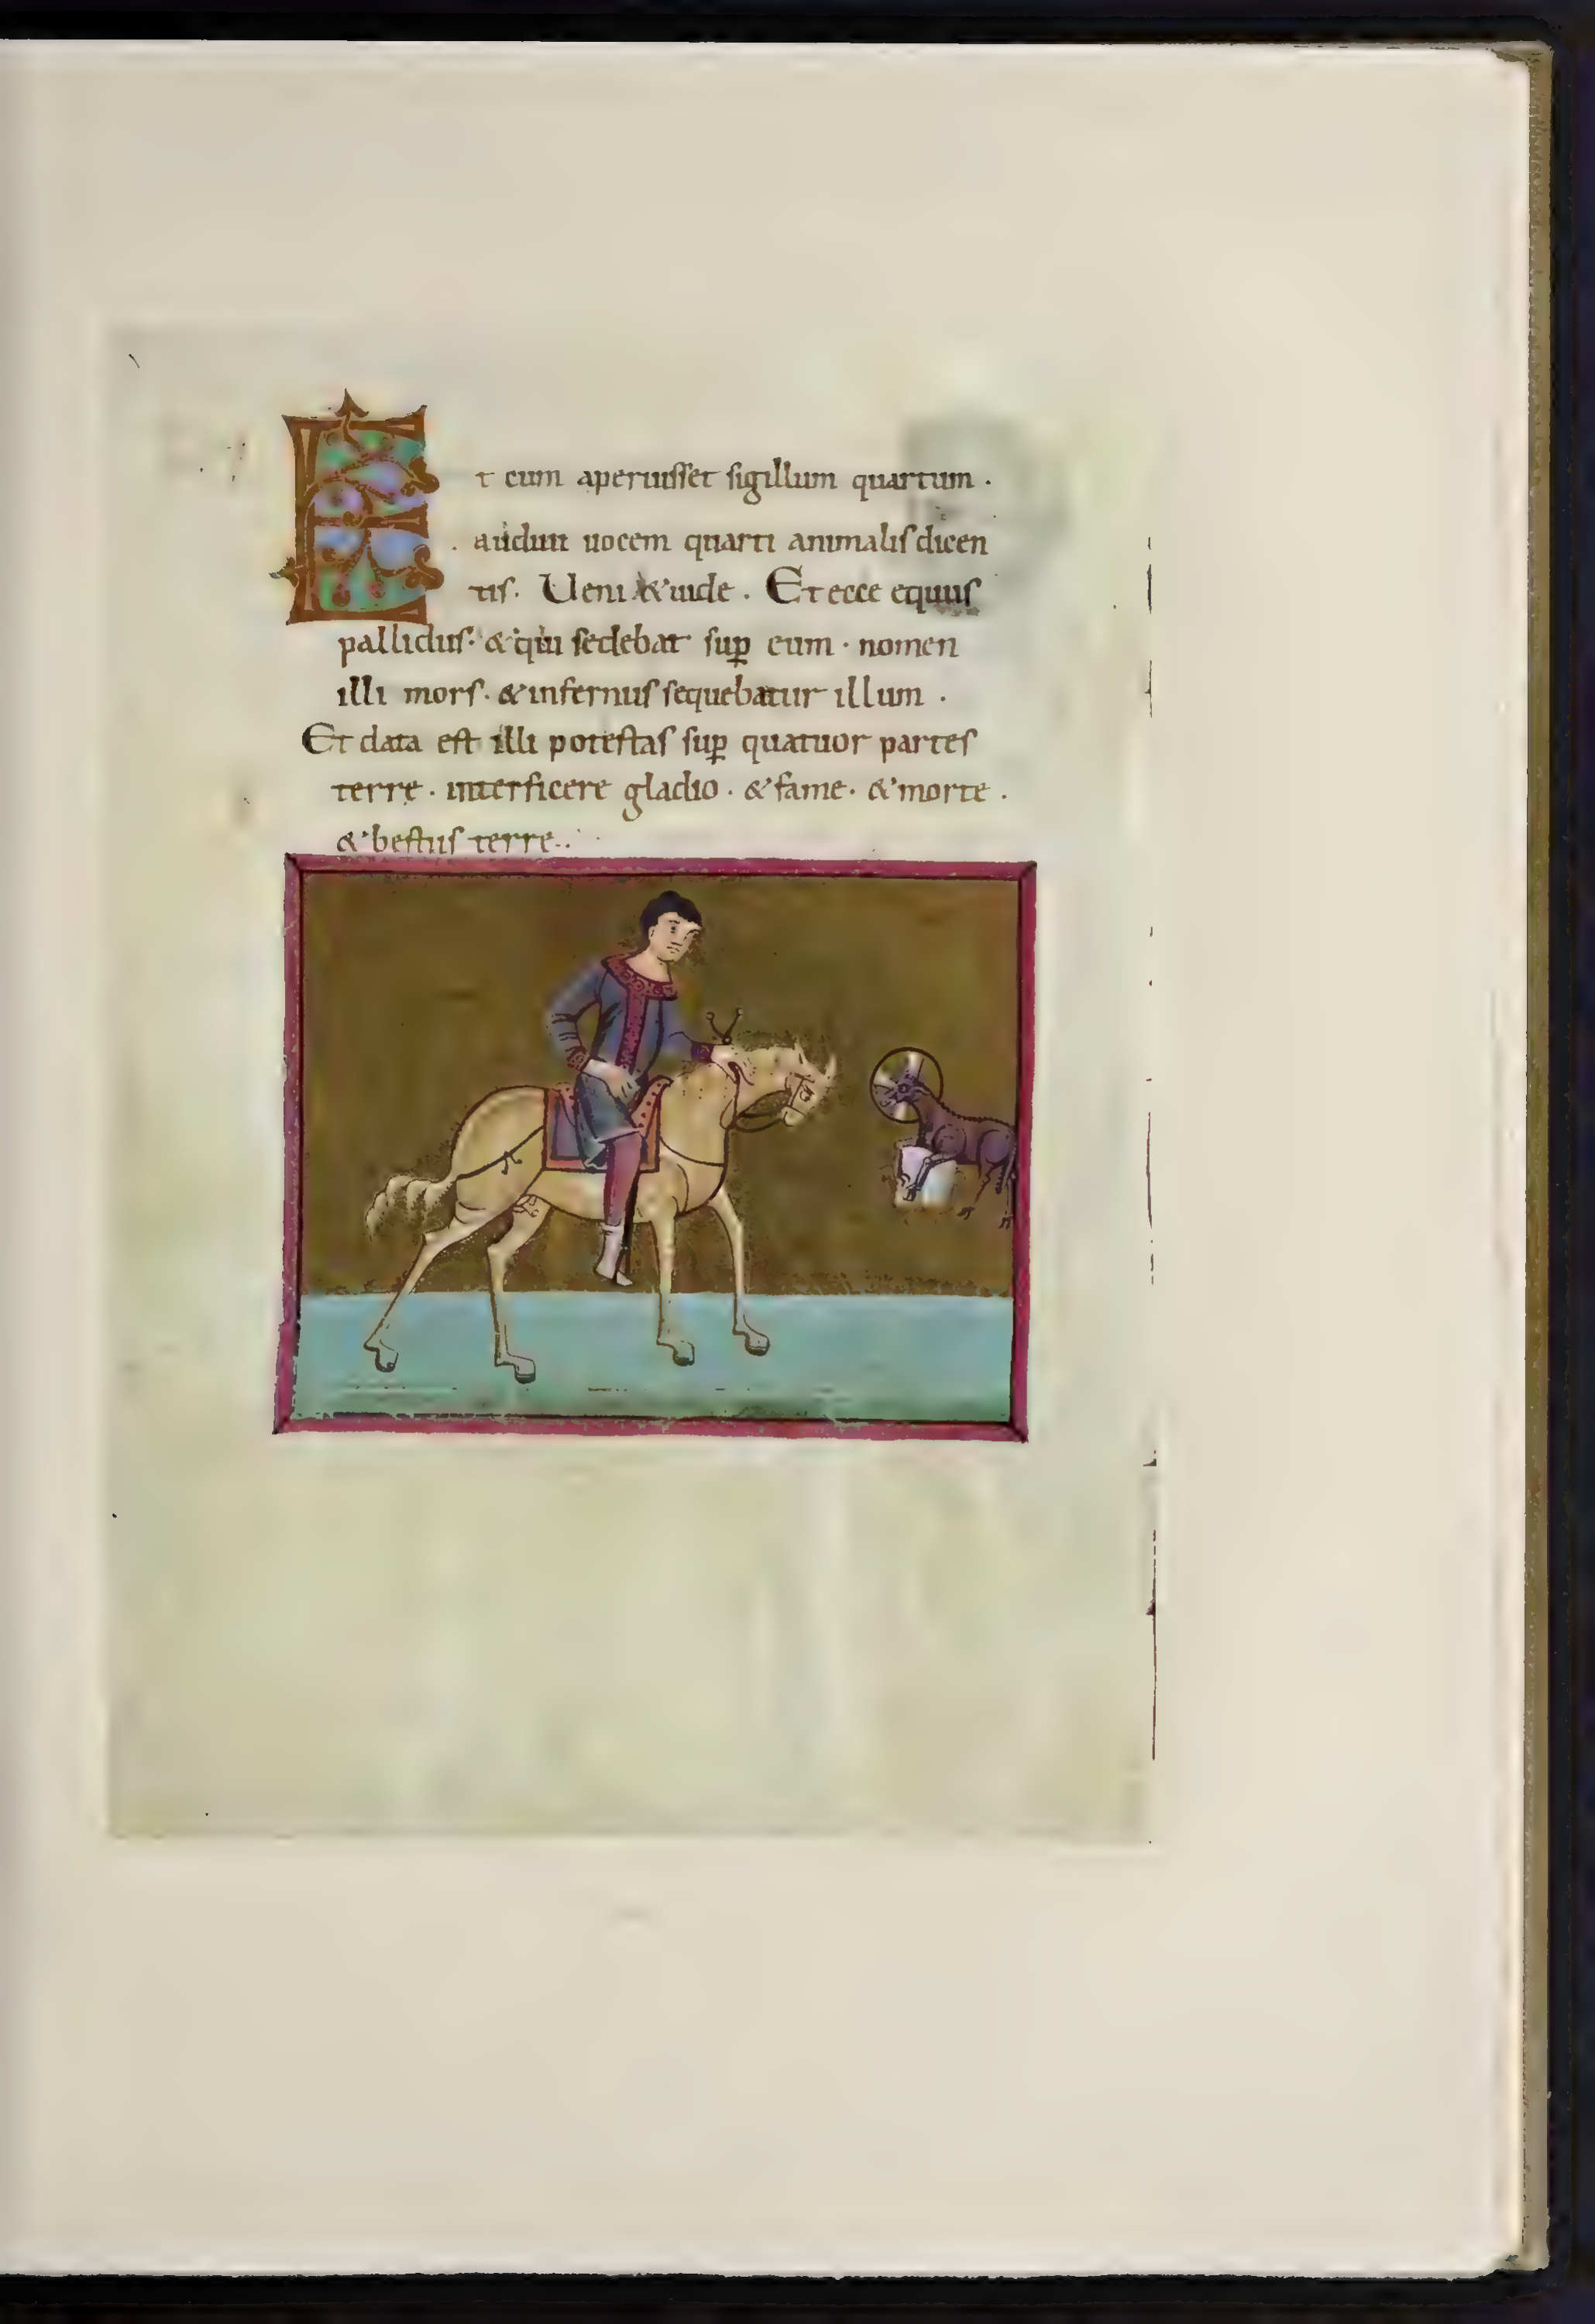 Et cum aperuisset sigillum quartum ·
audiui uocem quarti animalis dicen
tis. Ueni & uide . Et ecce equus
pallidus· & qui sedebat sup̲ eum · nomen
illi mors · & infernus sequebatur illum ·
Et data est illi potestas sup̲ quatuor partes
terre · interficere gladio · & fame · & morte ·
& bestiis terre..